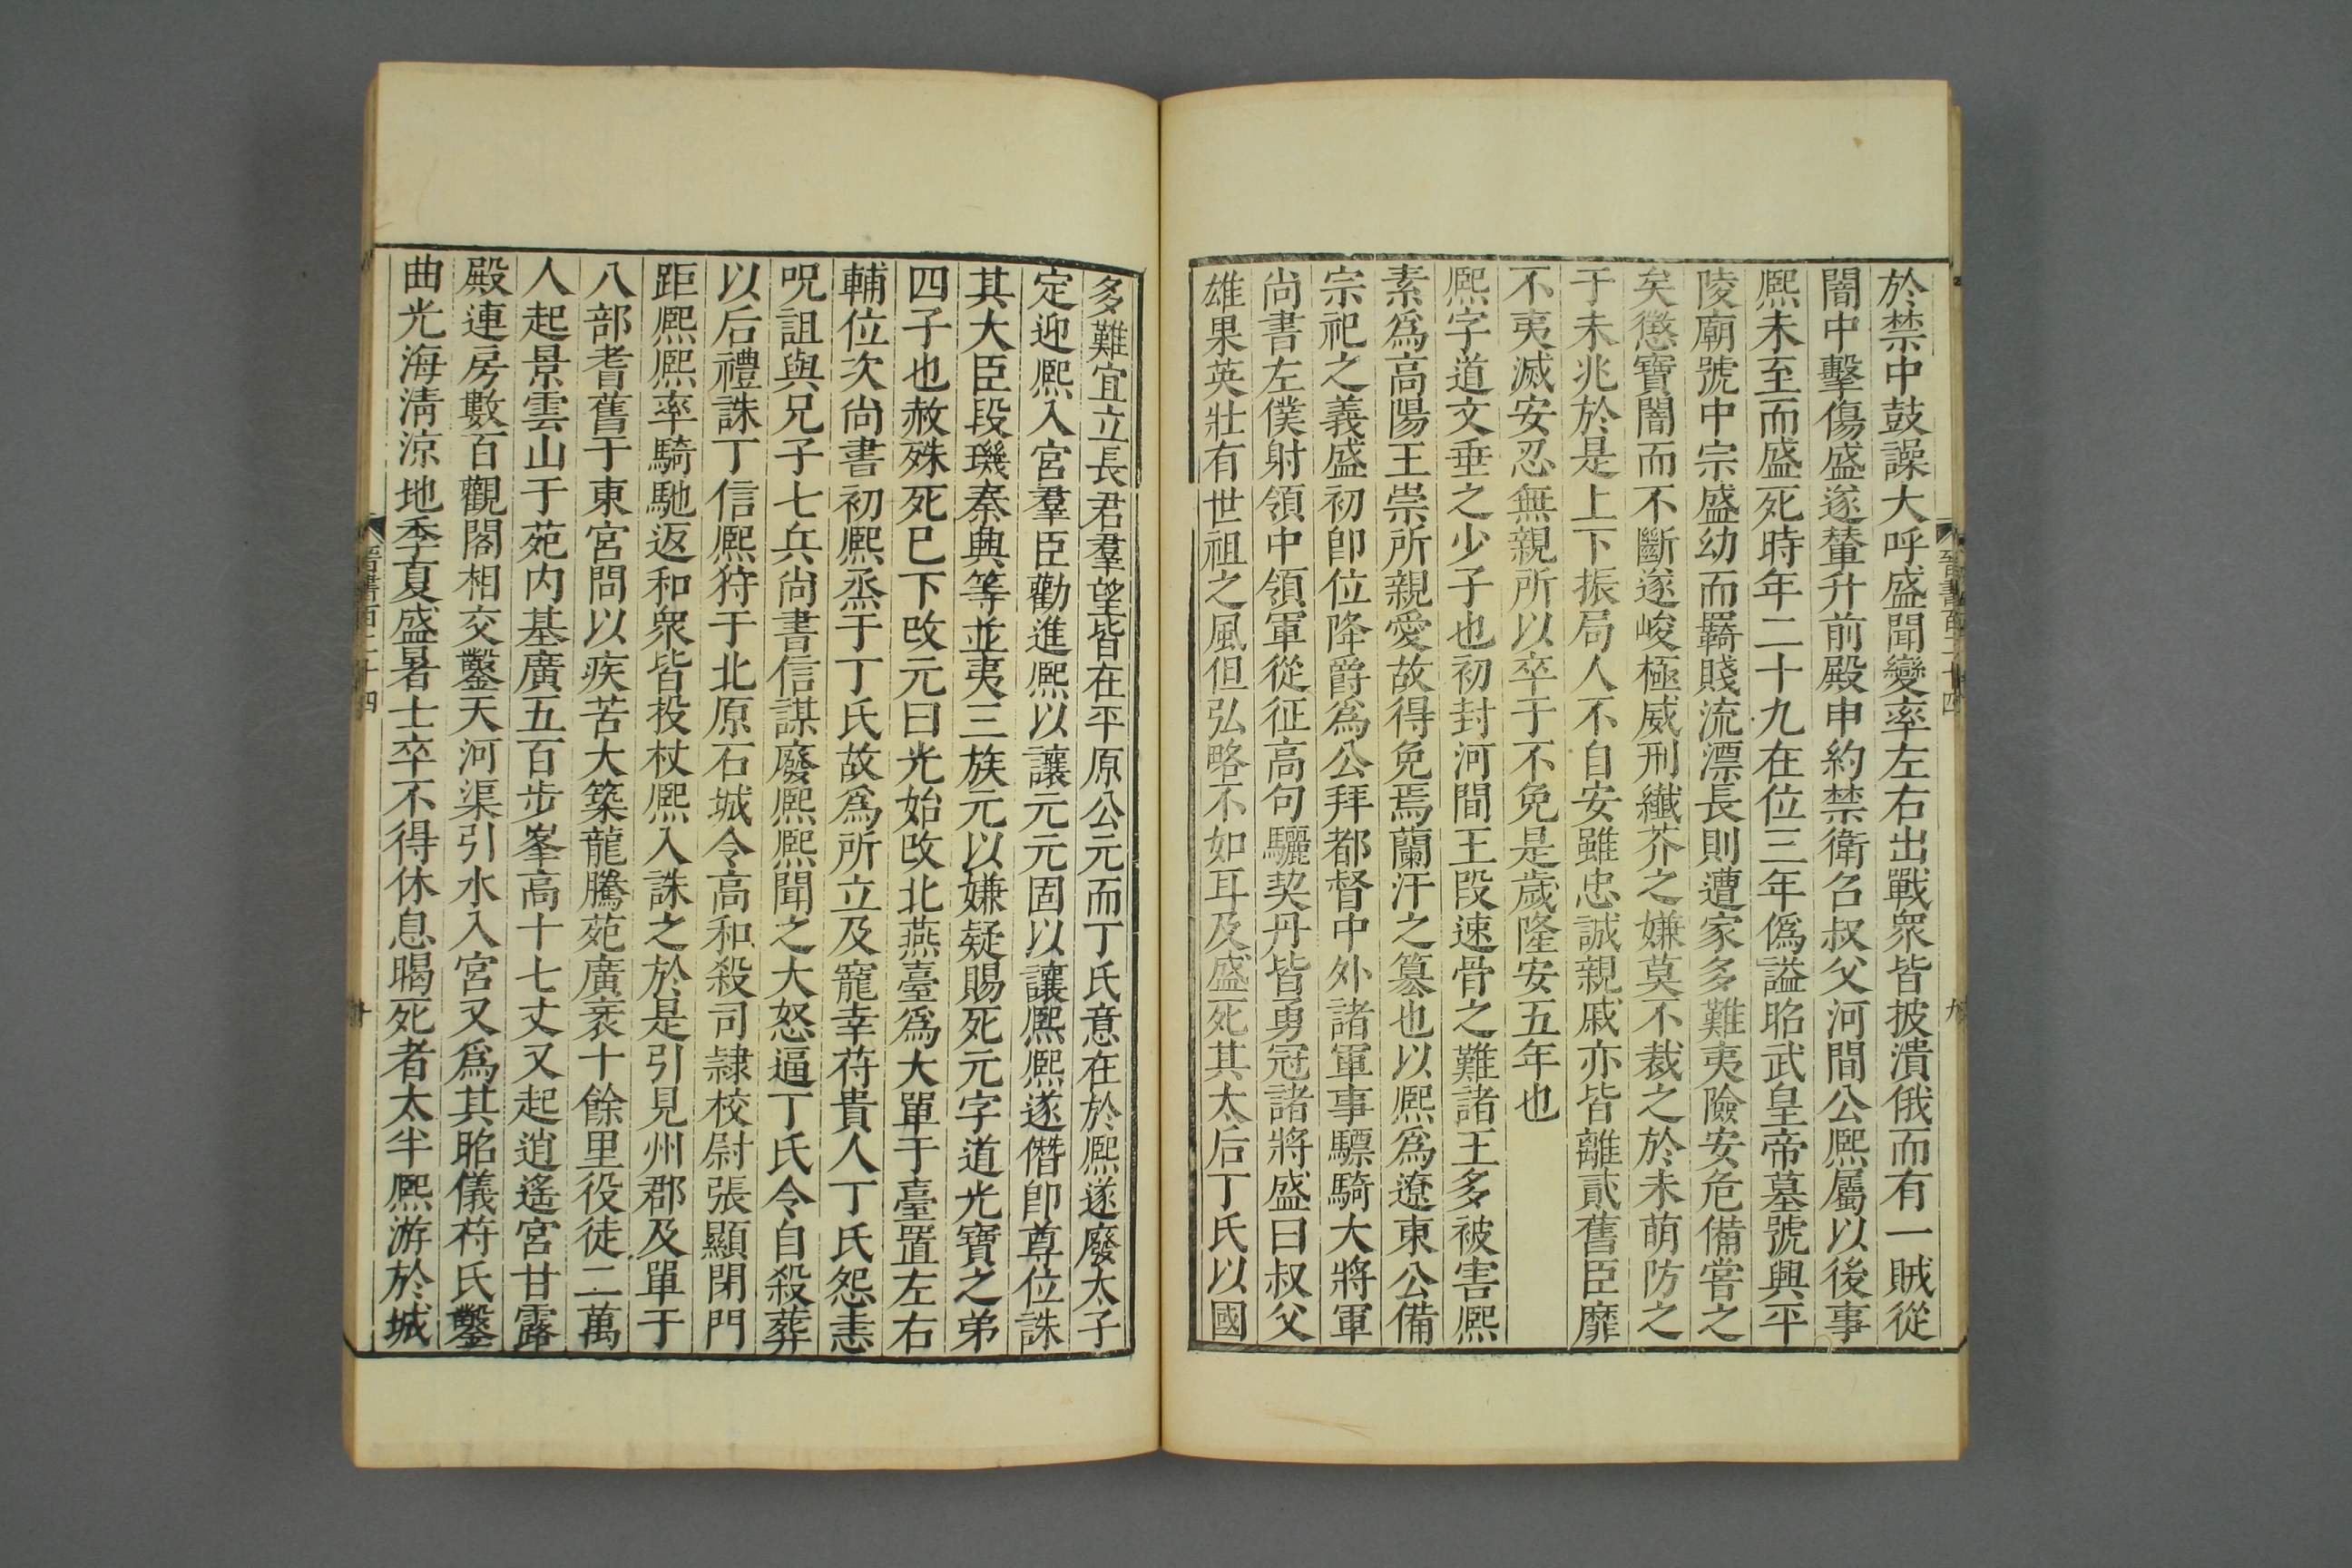 於禁中鼓譟大呼盛聞變率左右出戰衆皆披潰俄而有一賊從
闇中擊傷盛遂輦升前殿申約禁衛召叔父河間公熙屬以後事
熙未至而盛死時年二十九在位三年僞謚昭武皇帝墓號興平
陵廟號中宗盛幼而羇賤流漂長則遭家多難夷險安危備嘗之
矣懲寶闇而不斷遂峻極威刑纖芥之嫌莫不裁之於未萌防之
于未兆於是上下振局人不自安雖忠誠親戚亦皆離貳舊臣靡
不夷滅安忍無親所以卒于不免是歲隆安五年也
熙字道文垂之少子也初封河間王段速骨之難諸王多被害熙
素爲高陽王崇所親愛故得免焉蘭汗之篡也以熙爲遼東公備
宗祀之義盛初卽位降爵爲公拜都督中外諸軍事驃騎大將軍
尚書左僕射領中領軍從征高句驪契丹皆勇冠諸將盛曰叔父
雄果英壯有世祖之風但弘略不如耳及盛死其太后丁氏以國
晉書百二十四
九
多難宜立長君羣望皆在平原公元而丁氏意在於熙遂廢太子
定迎熙入宮羣臣勸進熙以讓元元固以讓熙熙遂僭卽尊位誅
其大臣段璣秦興等並夷三族元以嫌疑賜死元字道光寶之弟
四子也赦殊死已下改元曰光始改北燕臺爲大單于臺置左右
輔位次尚書初熙烝于丁氏故爲所立及寵幸苻貴人丁氏怨恚
呪詛與兄子七兵尚書信謀廢熙熙聞之大怒逼丁氏令自殺葬
以后禮誅丁信熙狩于北原石城令高和殺司隸校尉張顯閉門
距熙熙率騎馳返和衆皆投杖熙入誅之於是引見州郡及單于
八部耆舊于東宮問以疾苦大築龍騰苑廣袤十餘里役徒二萬
人起景雲山于苑内基廣五百步峯高十七丈又起逍遙宮甘露
殿連房數百觀閣相交鑿天河渠引水入宮又爲其昭儀苻氏鑿
曲光海淸涼池季夏盛暑士卒不得休息暍死者太半熙游於城
晉書百二十四
十